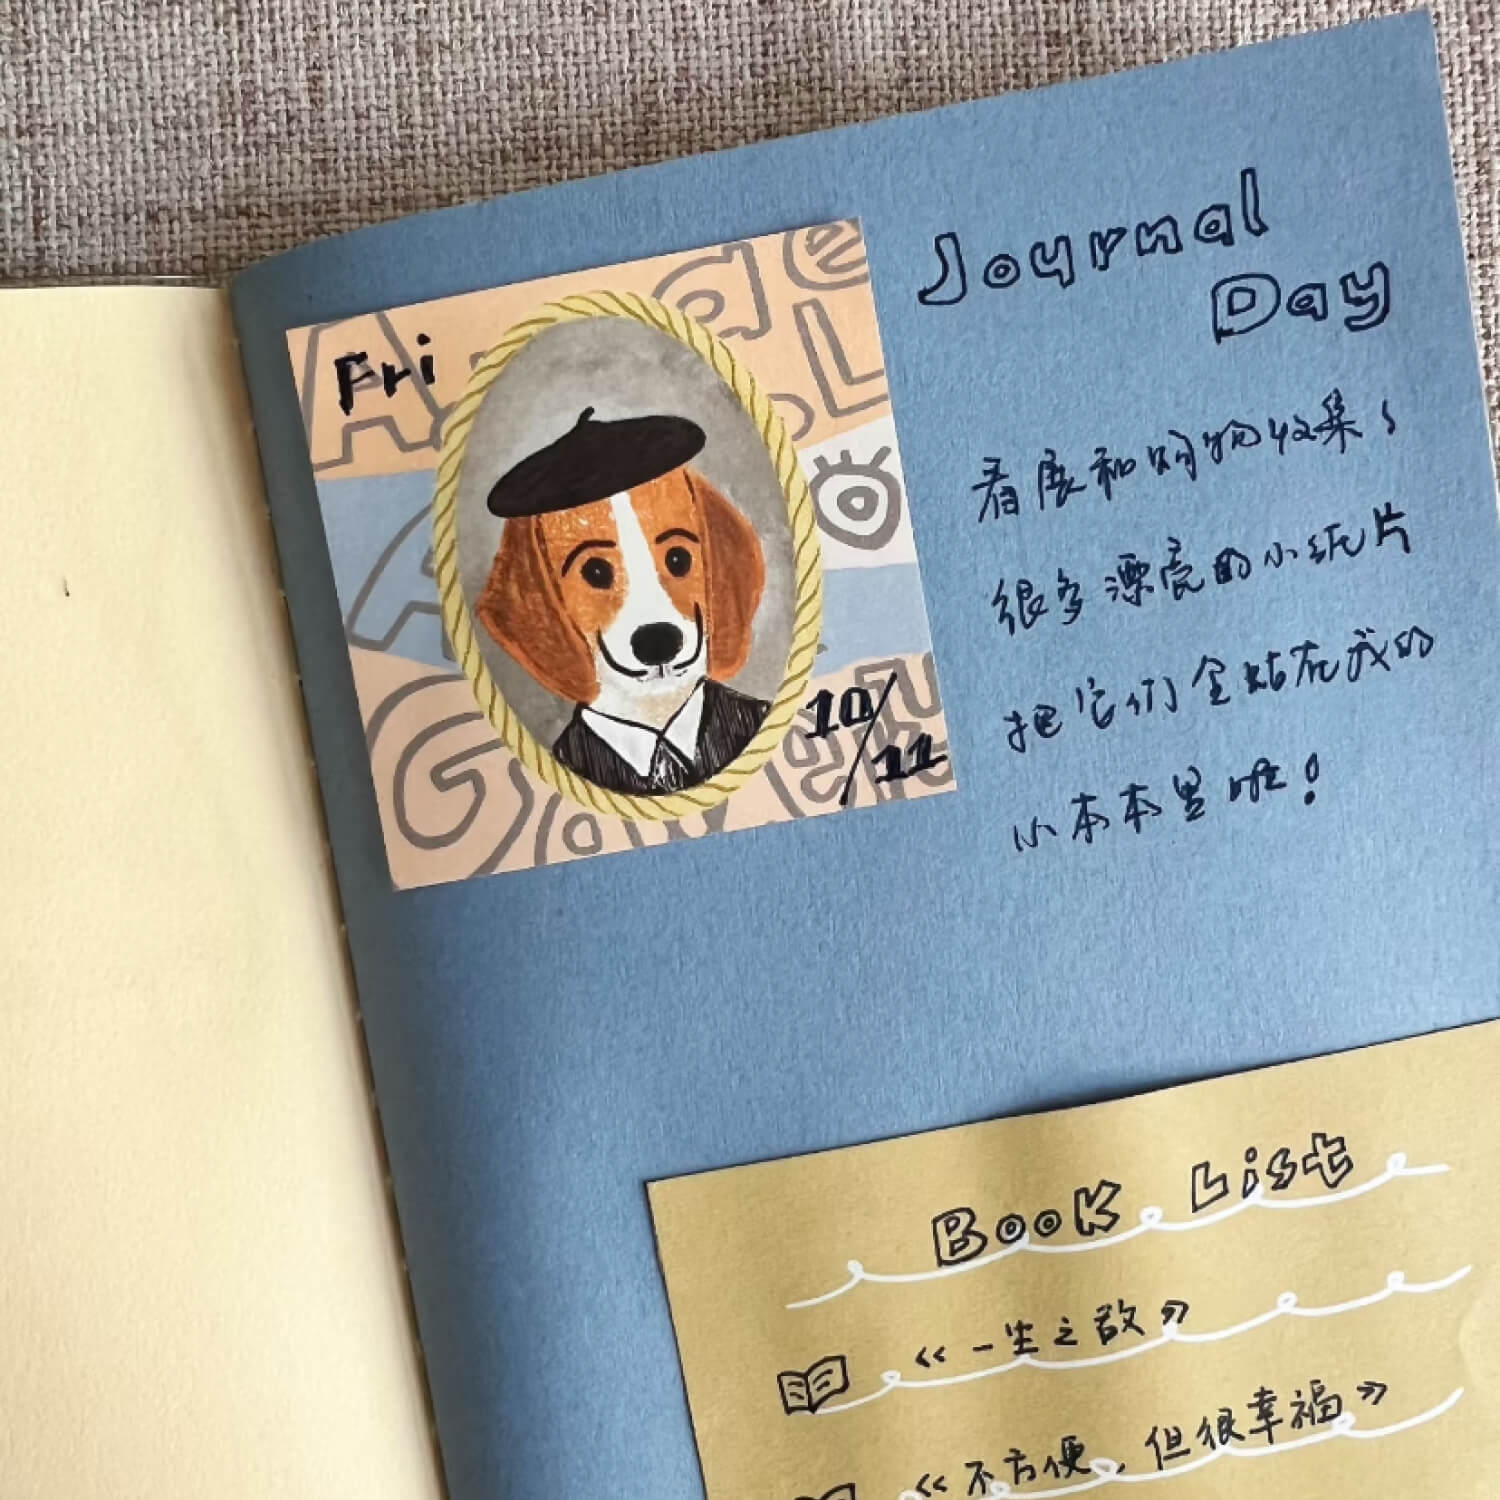 Fri
10/11
Journal
Day
看展和购物收集了
很多漂亮的小纸片
把它们全贴在我的
小本本里啦!
Book List
《一生之敌》
《不方便,但很幸福》